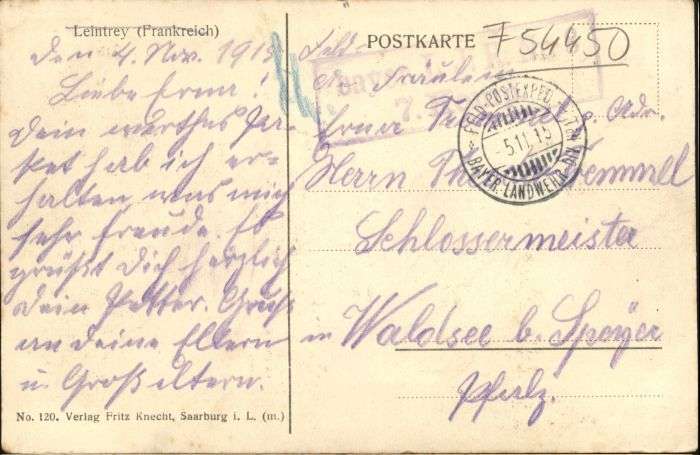 Leintrey (Frankreich)
den 4. Nov. 1915
Liebe Erna!
Dein werthes Pa-
ket hab ich er-
halten, was mich
sehr freute. Es
grüßt Dich herzlich
Dein Petter. Gruß
an deine Eltern
u. Großeltern.
No. 120. Verlag Fritz Knecht, Saarburg i. L. (m.)
POSTKARTE
F 54450
Fräulein
Erna
Adr.
Herrn
Schlossermeister
in Waldsee b. Speyer
Pfalz.
FELD-POSTEXPED.
-5.11.15
BAYER. LANDWEHR DIV.